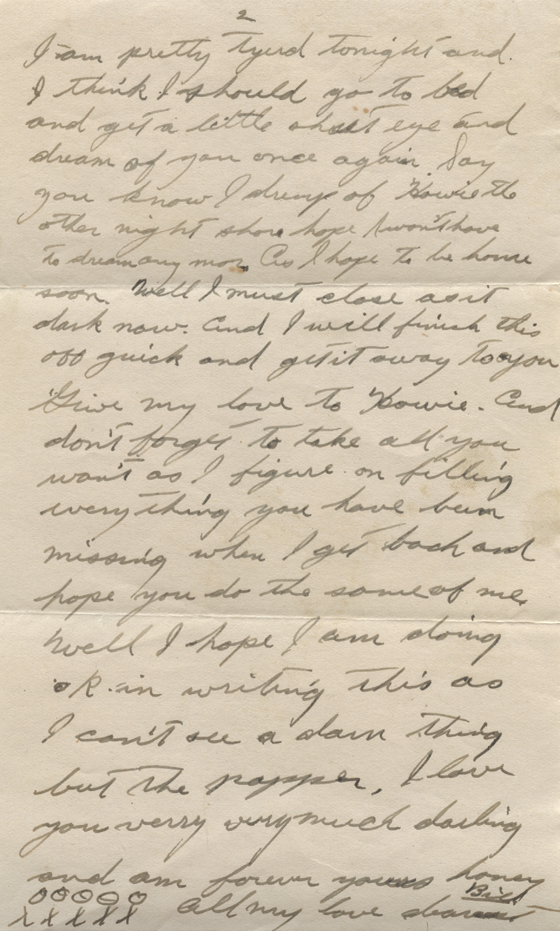 2
I am pretty tyerd tonight and.
I think I should go to bed
and get a little shut eye and
dream of you once again. Say
you know I dremp of Howie the
other night shore hope I won't have
to dream any mor. As I hope to be home
soon. Well I must close as it
dark now. And I will finish this
off quick and get it away to you
Give my love to Howie. And
don't forget to take all you
want as I figure on filling
everything you have been
missing when I get back and
hope you do the same of me.
Well I hope I am doing
o.K. in writing this as
I can't see a darn thing
but the papper, I love
you verry verry much darling
and am forever yours honey
OOOOO Bill
XXXXX All my love dearest